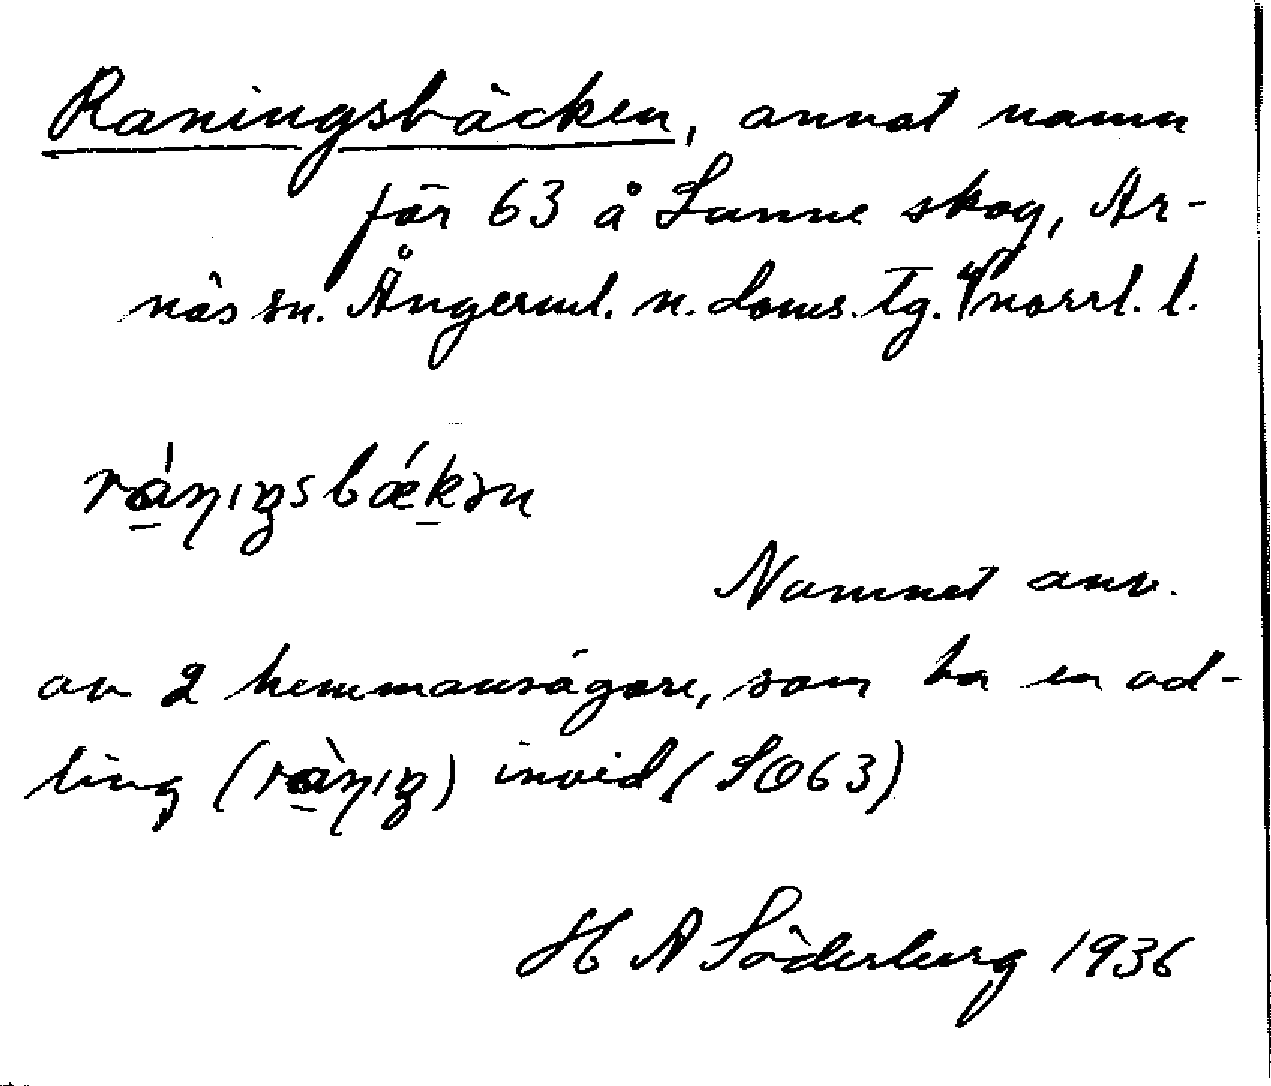 Raningsbäcken, annat namn
för 63 å Sunne skog, Ar-
näs sn. Ångerml. n. doms. tg. Norrl. l.
ráŋıŋsbǽkən
Namnet anv.
av 2 hemmansägare, som ha en od-
ling (ràŋıŋ) invid (SO63)
H A Söderberg 1936